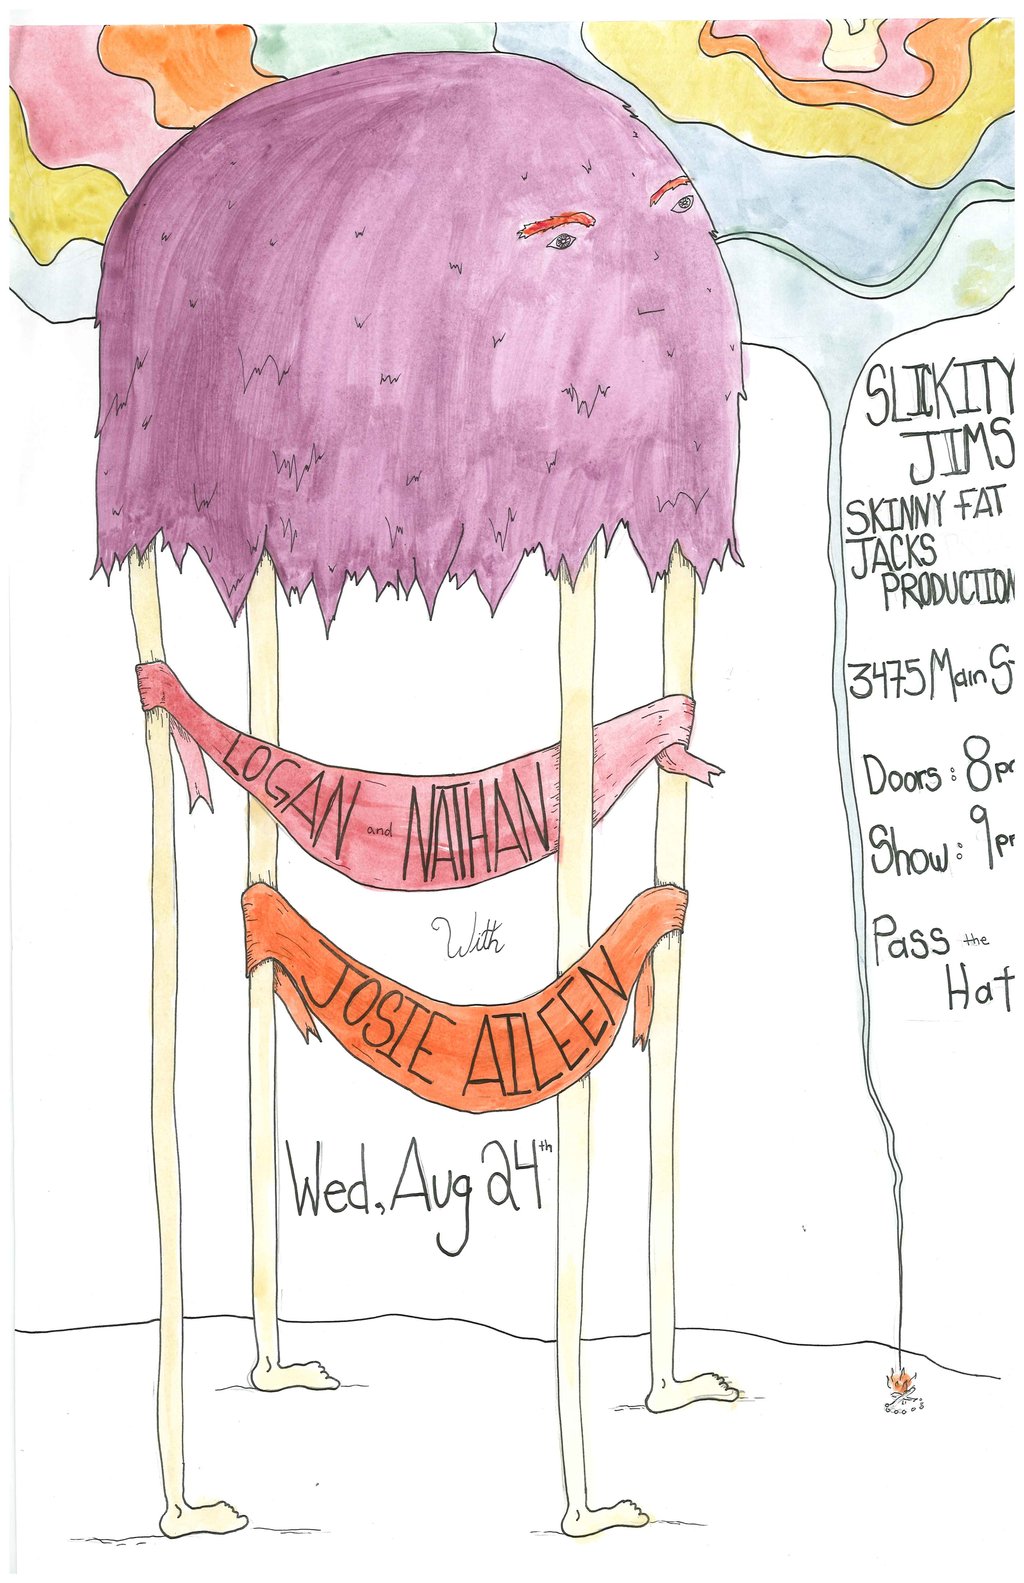 LOGAN and NATHAN
With
JOSIE AILEEN
Wed, Aug 24th
SLICKITY
JIMS
SKINNY FAT
JACKS
PRODUCTION
3475 Main St
Doors: 8pm
Show: 9pm
Pass the
Hat